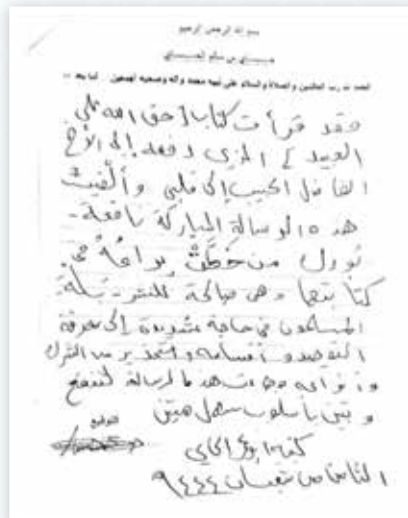 بسم الله الرحمن الرحيم
الحمد لله رب العالمين والصلاة والسلام على نبيه محمد وآله وصحبه أجمعين . أما بعد ..
فقد قرأت كتاب (حق الله على
العبيد) الذي دفعه إلي الأخ
الفاضل الحبيب إلى قلبي وألفيت
هذه الرسالة المباركة نافعة -
كتابتها وهي صالحة للنشر
المسلمون في حاجة شديدة إلى معرفة
التوحيد وأقسامه والتحذير من الشرك
وأنواعه هذه الرسالة لتنفع
بأسلوب سهل
كتبه
الثامن من شعبان ١٤٤٤